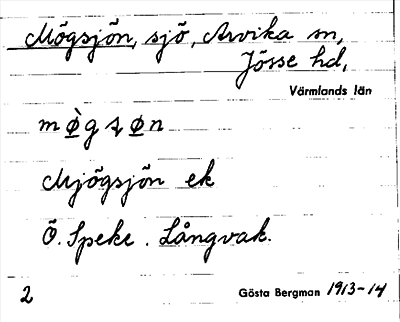 Mögsjön, sjö, Arvika sn,
Jösse hd,
Värmlands län
Mjögsjön ek
Ö. Speke. Långvak.
2 Gösta Bergman 1913-14